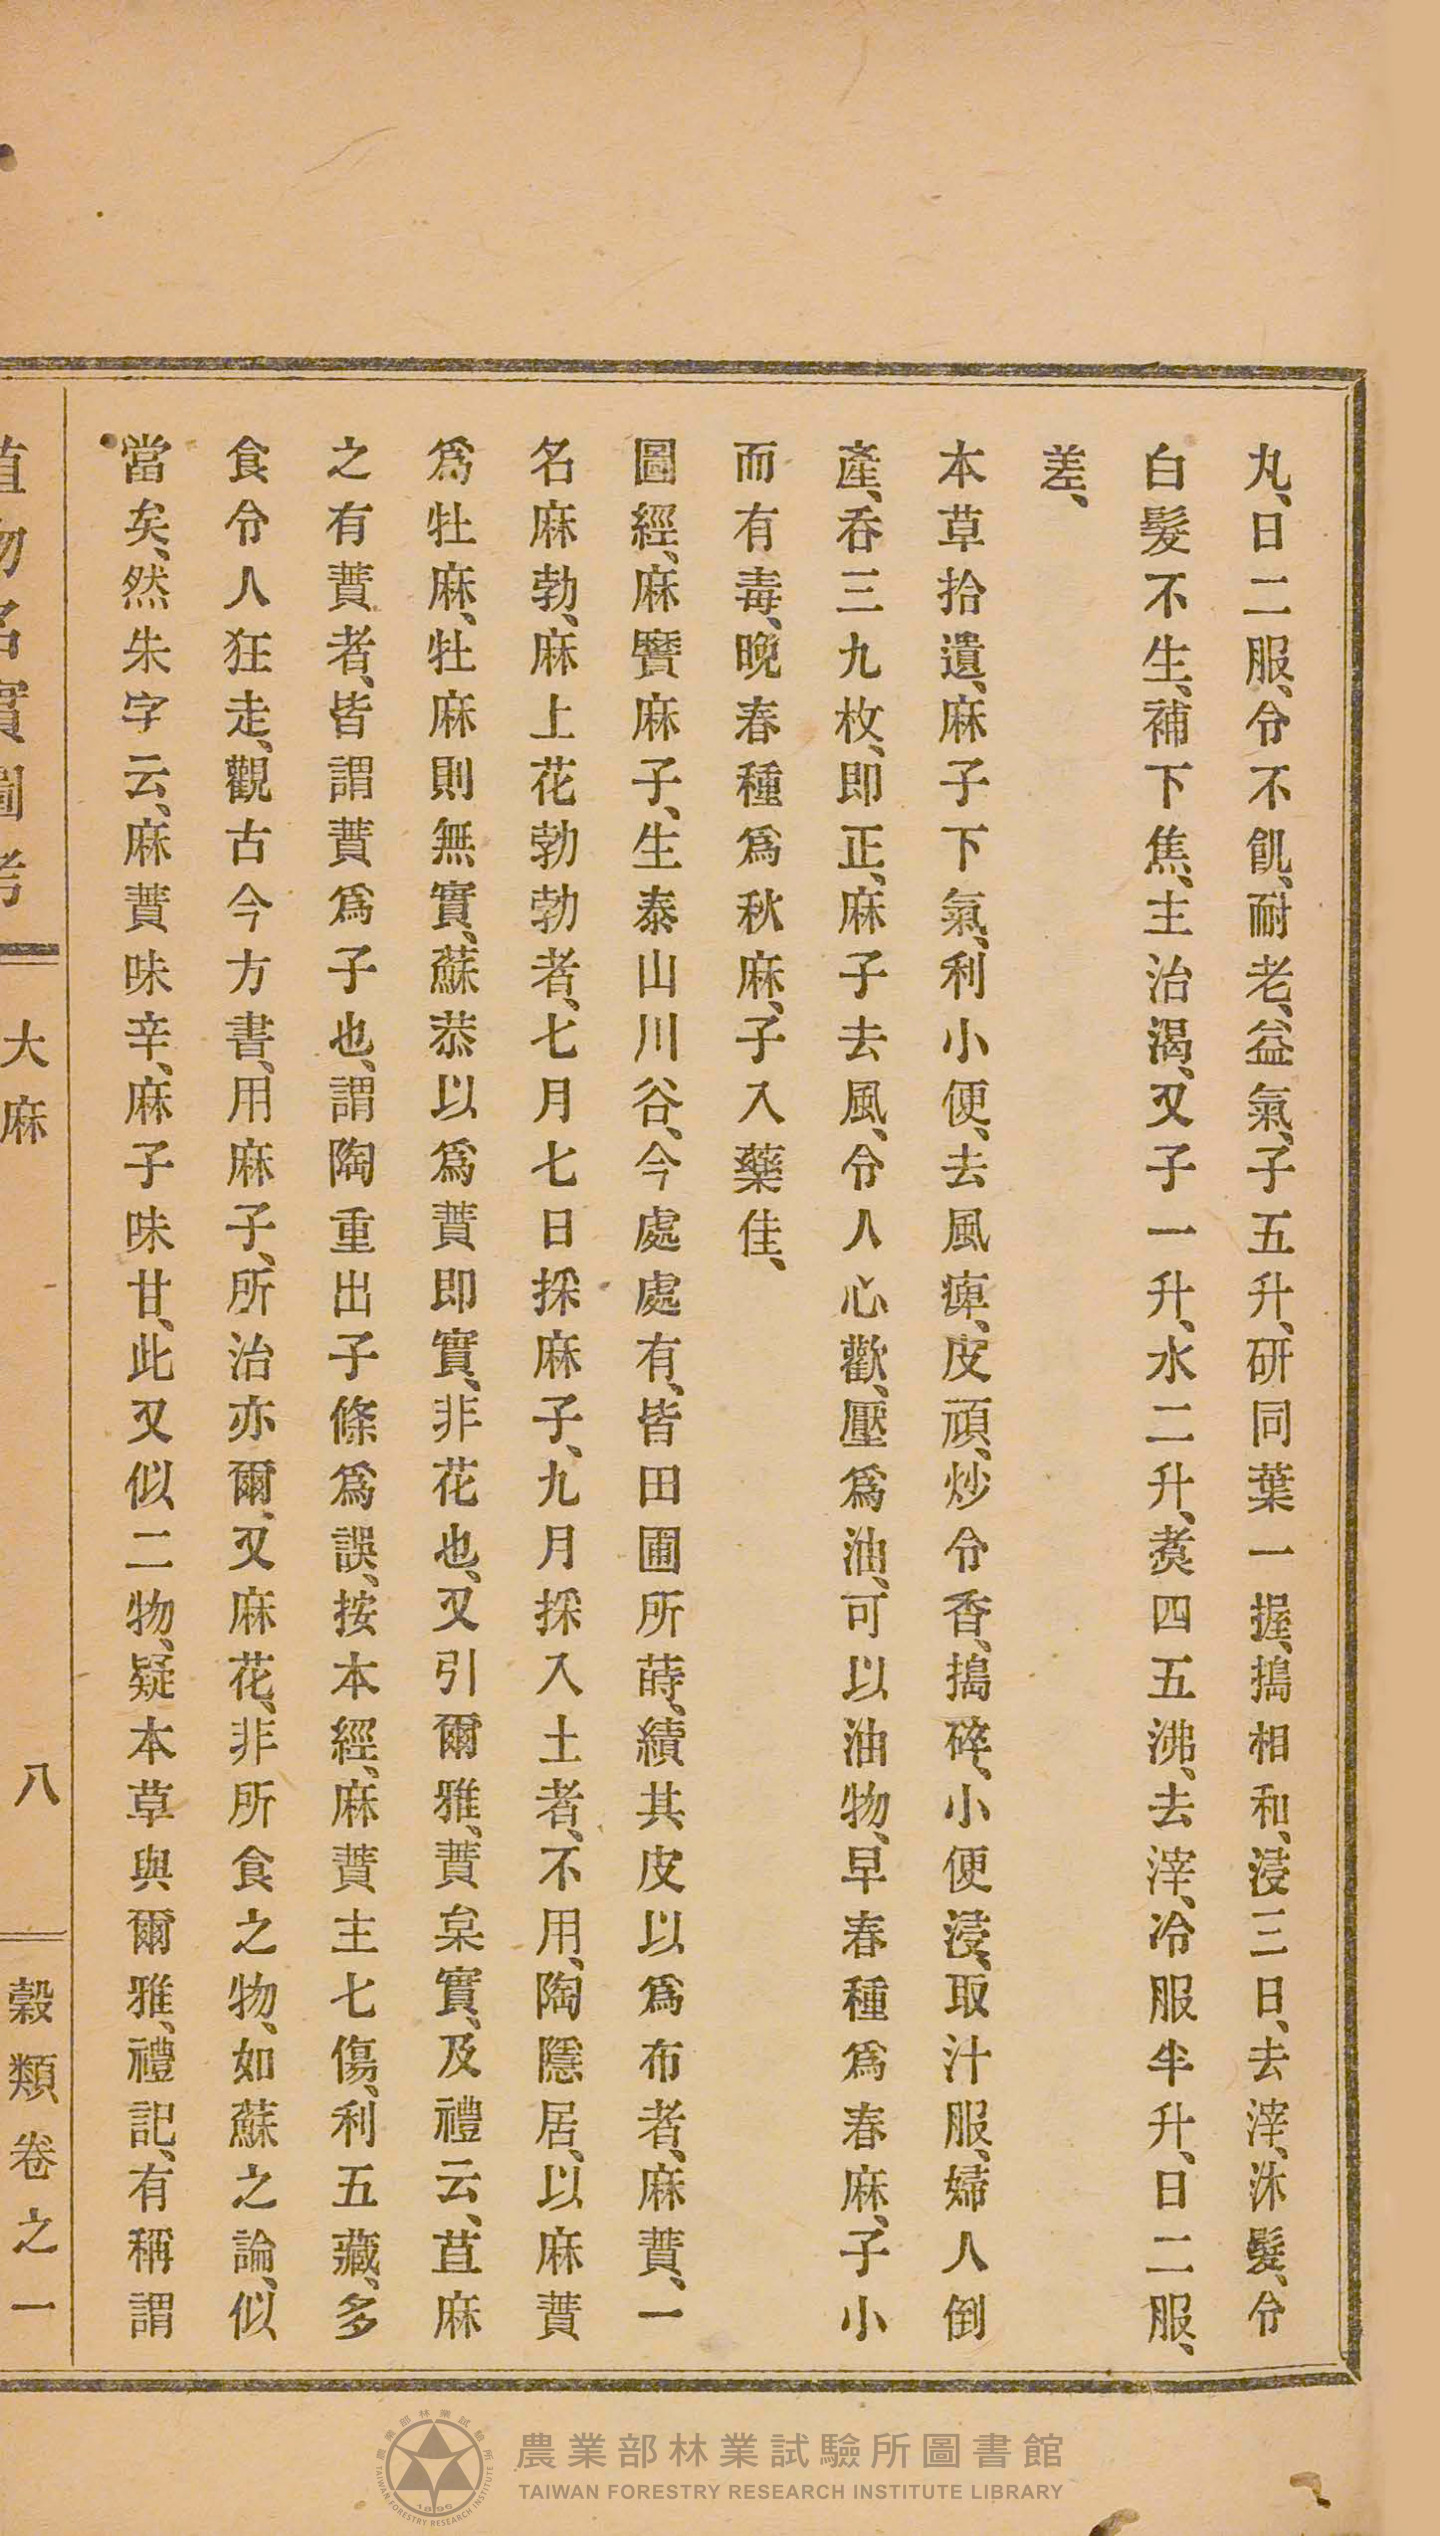 丸、日二服、令不飢、耐老、益氣、子五升、研同葉一握、搗相和、浸三日、去滓、沐髮、令
白髮不生、補下焦、主治渴、又子一升、水二升、煑四五沸、去滓、冷服半升、日二服、
差、
本草拾遺、麻子下氣、利小便、去風痺、皮頑、炒令香、搗碎、小便浸、取汁服、婦人倒
產、吞三九枚、即正、麻子去風、令人心歡、壓爲油、可以油物、早春種爲春麻、子小
而有毒、晚春種爲秋麻、子入藥佳、
圖經、麻蕡麻子、生泰山川谷、今處處有、皆田圃所蒔、績其皮以爲布者、麻蕡、一
名麻勃、麻上花勃勃者、七月七日採麻子、九月採入土者、不用、陶隱居、以麻蕡
爲牡麻、牡麻則無實、蘇恭以爲蕡即實、非花也、又引爾雅、蕡枲實、及禮云、苴麻
之有蕡者、皆謂蕡爲子也、謂陶重出子條爲誤、按本經、麻蕡主七傷、利五藏、多
食令人狂走、觀古今方書、用麻子、所治亦爾、又麻花、非所食之物、如蘇之論、似
當矣、然朱字云、麻蕡味辛、麻子味甘、此又似二物、疑本草與爾雅、禮記、有稱謂
植物名實圖考 大麻 八 穀類卷之一
農業部林業試驗所圖書館
TAIWAN FORESTRY RESEARCH INSTITUTE LIBRARY
農業部林業試驗所
TAIWAN FORESTRY RESEARCH INSTITUTE
1896